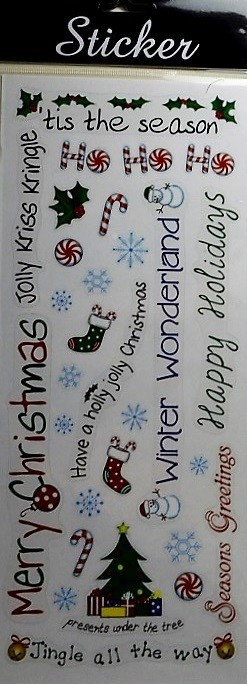 Sticker
'tis the season
HO HO HO
Jolly Kriss Kringle
Merry Christmas
Have a holly jolly Christmas
Winter Wonderland
Happy Holidays
Seasons Greetings
presents under the tree
Jingle all the way